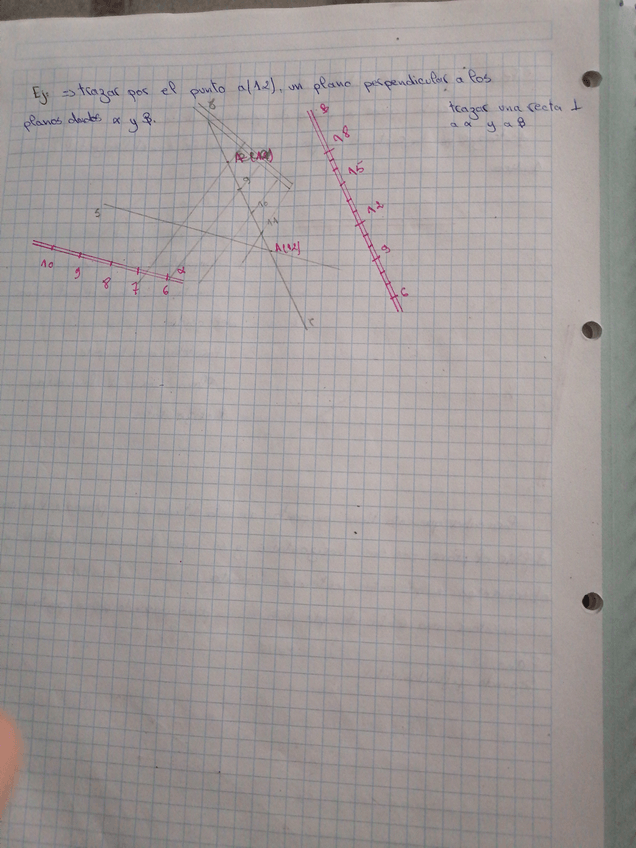 Ej ⇒ trazar por el punto a(12), un plano perpendicular a los
planos dados α y β.
trazar una recta ⊥
a α y a β
β
18
15
12
9
6
9
10
11
A(12)
s
r
10
9
8
7
6
α